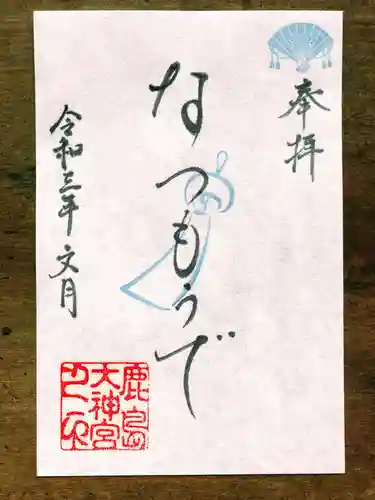 奉拝
なつもうで
令和三年 文月
鹿島
大神宮
之印